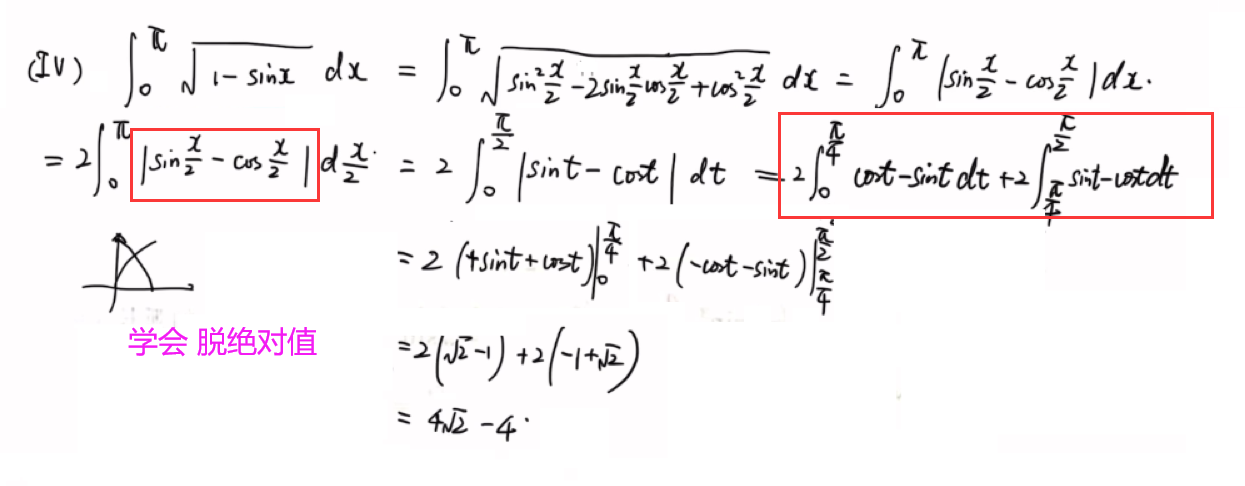 (IV) ∫₀^π √(1-sinx) dx = ∫₀^π √(sin²x/2 - 2sin x/2 cos x/2 + cos² x/2) dx = ∫₀^π |sin x/2 - cos x/2| dx.
= 2∫₀^π |sin x/2 - cos x/2| d x/2 = 2∫₀^(π/2) |sint - cost| dt = 2∫₀^(π/4) cost-sint dt + 2∫_(π/4)^(π/2) sint-costdt
= 2 (+sint+cost)|₀^(π/4) + 2(-cost-sint)|_(π/4)^(π/2)
学会 脱绝对值
=2(√2-1)+2(-1+√2)
= 4√2 -4.